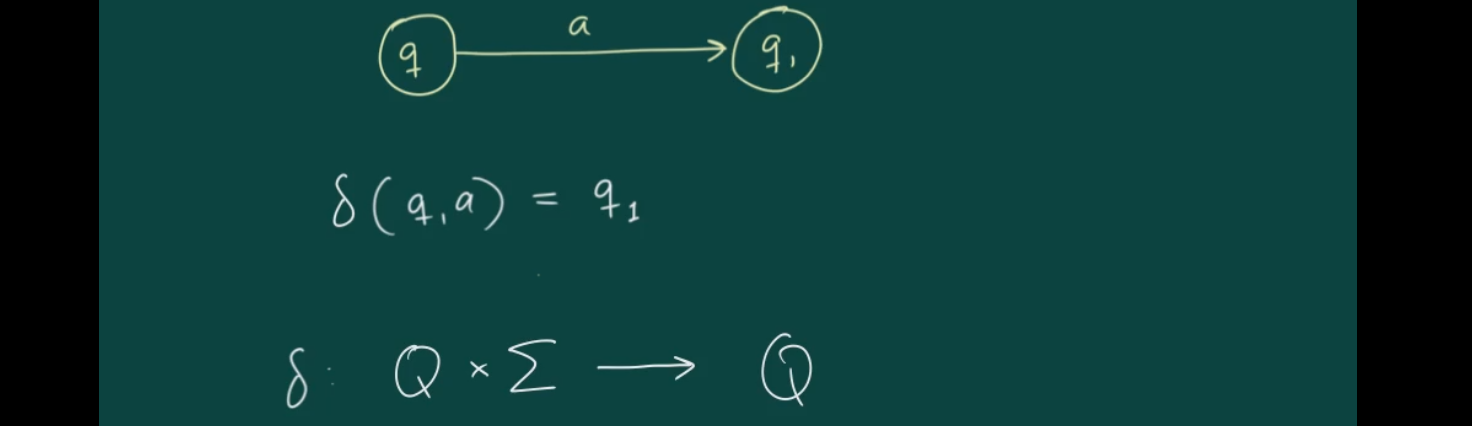 a
q q₁
δ(q,a) = q₁
δ: Q × Σ ⟶ Q